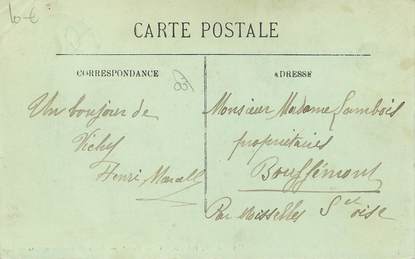 6€
CARTE POSTALE
CORRESPONDANCE
ADRESSE
Un bonjour de
Vichy
Henri Marcell
Monsieur Madame Lambois
propriétaires
Bouffémont
Par Moisselles S et oise